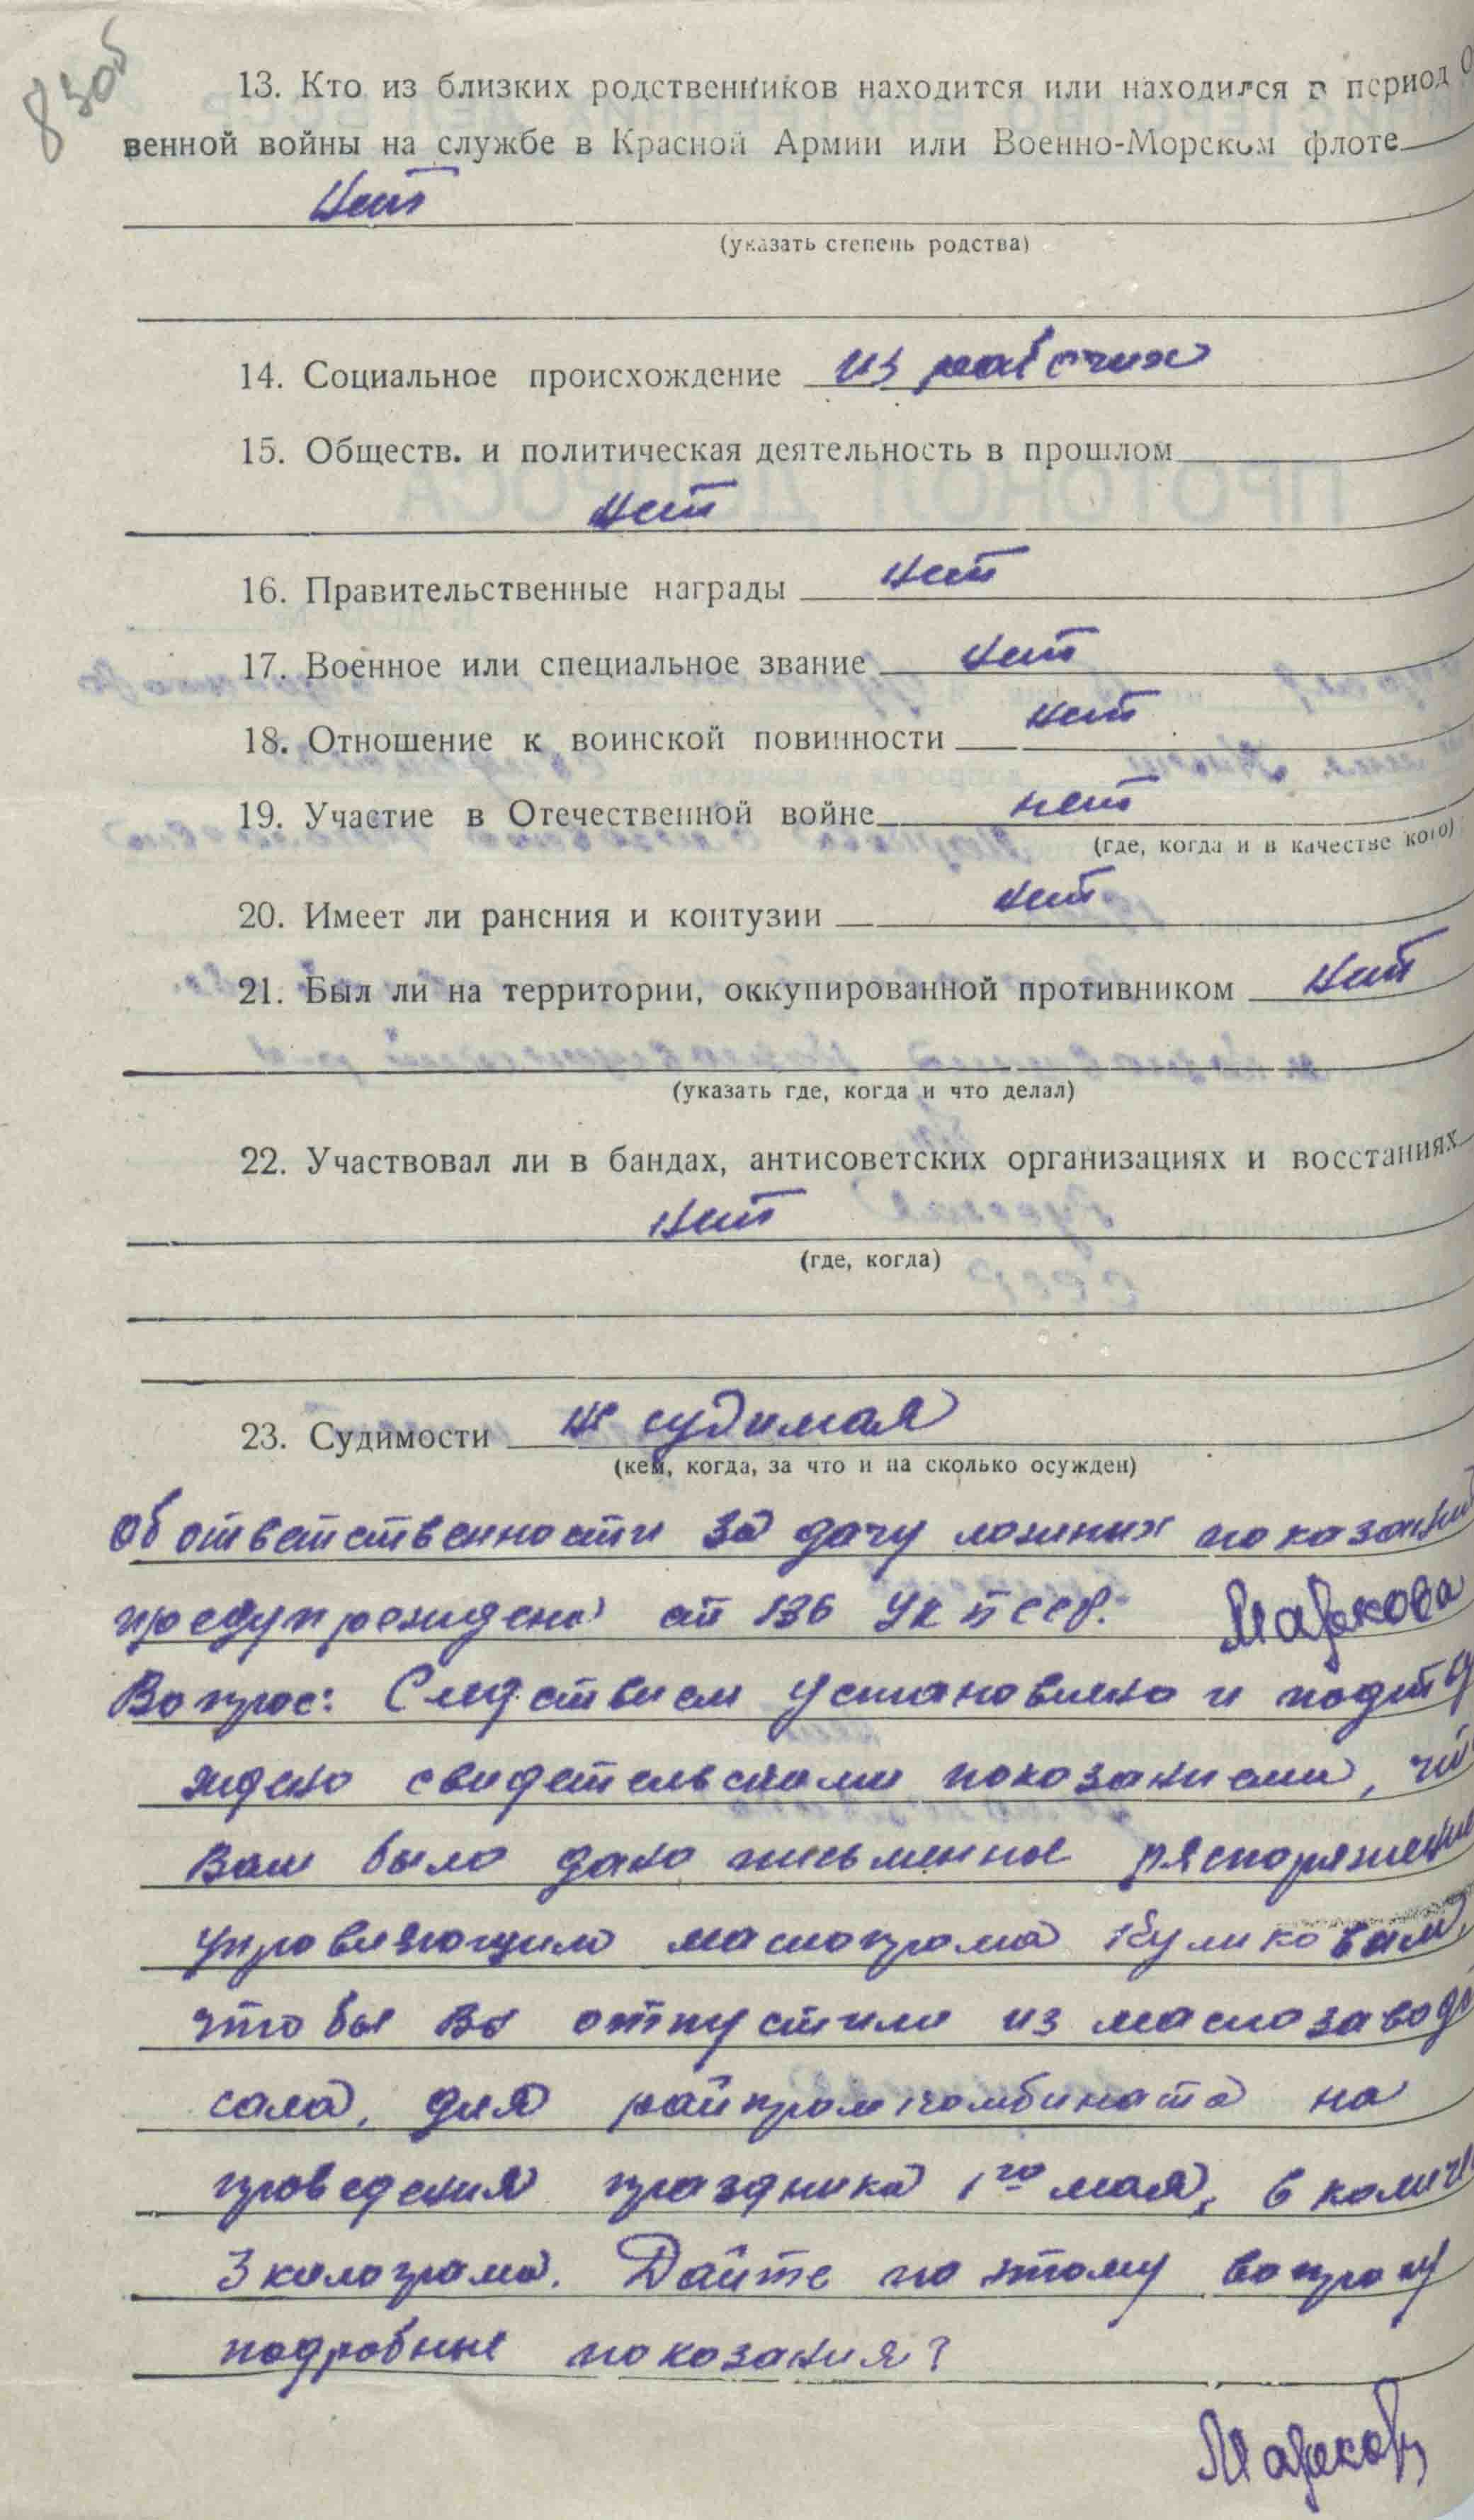 830б
13. Кто из близких родственников находится или находился в период О
венной войны на службе в Красной Армии или Военно-Морском флоте
нет
(указать степень родства)
14. Социальное происхождение из рабочих
15. Обществ. и политическая деятельность в прошлом
нет
16. Правительственные награды нет
17. Военное или специальное звание нет
18. Отношение к воинской повинности нет
19. Участие в Отечественной войне нет
(где, когда и в качестве кого)
20. Имеет ли ранения и контузии нет
21. Был ли на территории, оккупированной противником нет
(указать где, когда и что делал)
22. Участвовал ли в бандах, антисоветских организациях и восстаниях
нет
(где, когда)
23. Судимости не судимая
(кем, когда, за что и на сколько осужден)
Об ответственности за дачу ложных показаний
предупреждена ст 136 УК БССР. Маркова
Вопрос: Следствием установлено и подтвер
ждено свидетельскими показаниями, что
Вам было дано письменное распоряжение
управляющим маслопрома Куликовым,
что бы Вы отпустили из маслозавода
сала, для райпромкомбината на
проведения праздника 1го мая, в колич
3 килограма. Дайте по этому вопросу
подробные показания?
Маркова